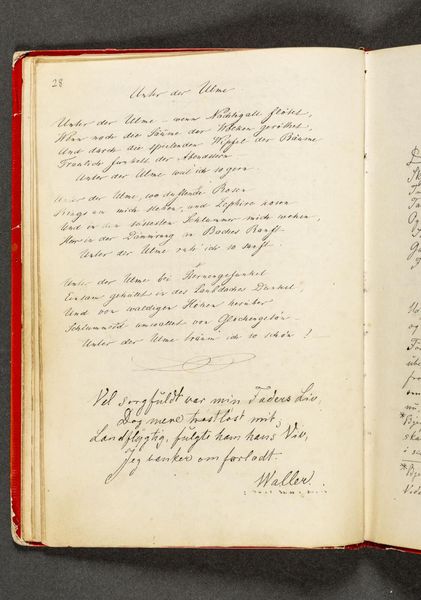 28
Unter der Ulme
Unter der Ulme – wenn Nachtigall flötet,
Wenn noch die Säume der Wolken geröthet,
Und durch die spielenden Wipfel der Bäume
Traulich funkelt der Abendstern
Unter der Ulme weil ich so gern.
Unter der Ulme, wo duftende Rosen
Rings um mich stehen, und Zephire kosen
Und in den süssesten Schlummer mich wehen,
Hier in der Dämmrung an Baches Ranft
Unter der Ulme ruh' ich so sanft.
Unter der Ulme bei Sternengefunkel
Einsam gehüllt in des Laubdaches Dunkel,
Und von waldigen Höhen herüber
Schlummernd umwallet von Glockengetön
Unter der Ulme träum' ich so schön!
Vel sorgfuldt var min Faders Liv,
Dog mere trøstløst mit,
Landflygtig, fulgte ham hans Viv,
Jeg vanker om forladt.
Waller.